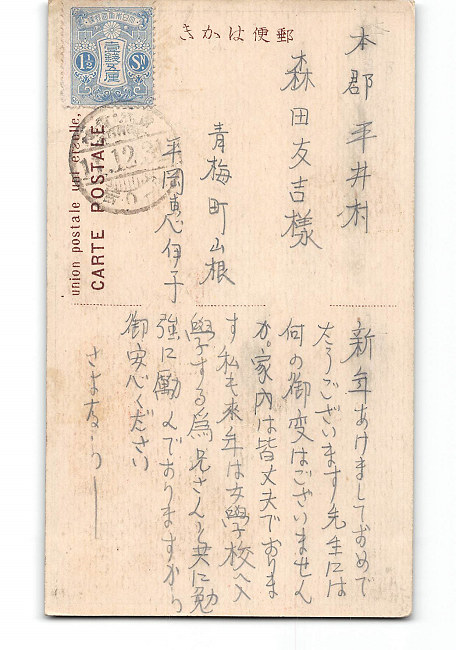 きかは便郵
大日本帝國郵便
壹錢五厘
1½ Sn
union postale universelle.
CARTE POSTALE
12.31
本郡 平井村
森田友吉様
青梅町山根
平岡惠伊子
新年あけましておめで
たうございます先生には
何の御変はございません
か。家内は皆丈夫でおりま
す私も来年は女學校へ入
學する為兄さんと共に勉
強に励んでおりますから
御安心ください
さよなら